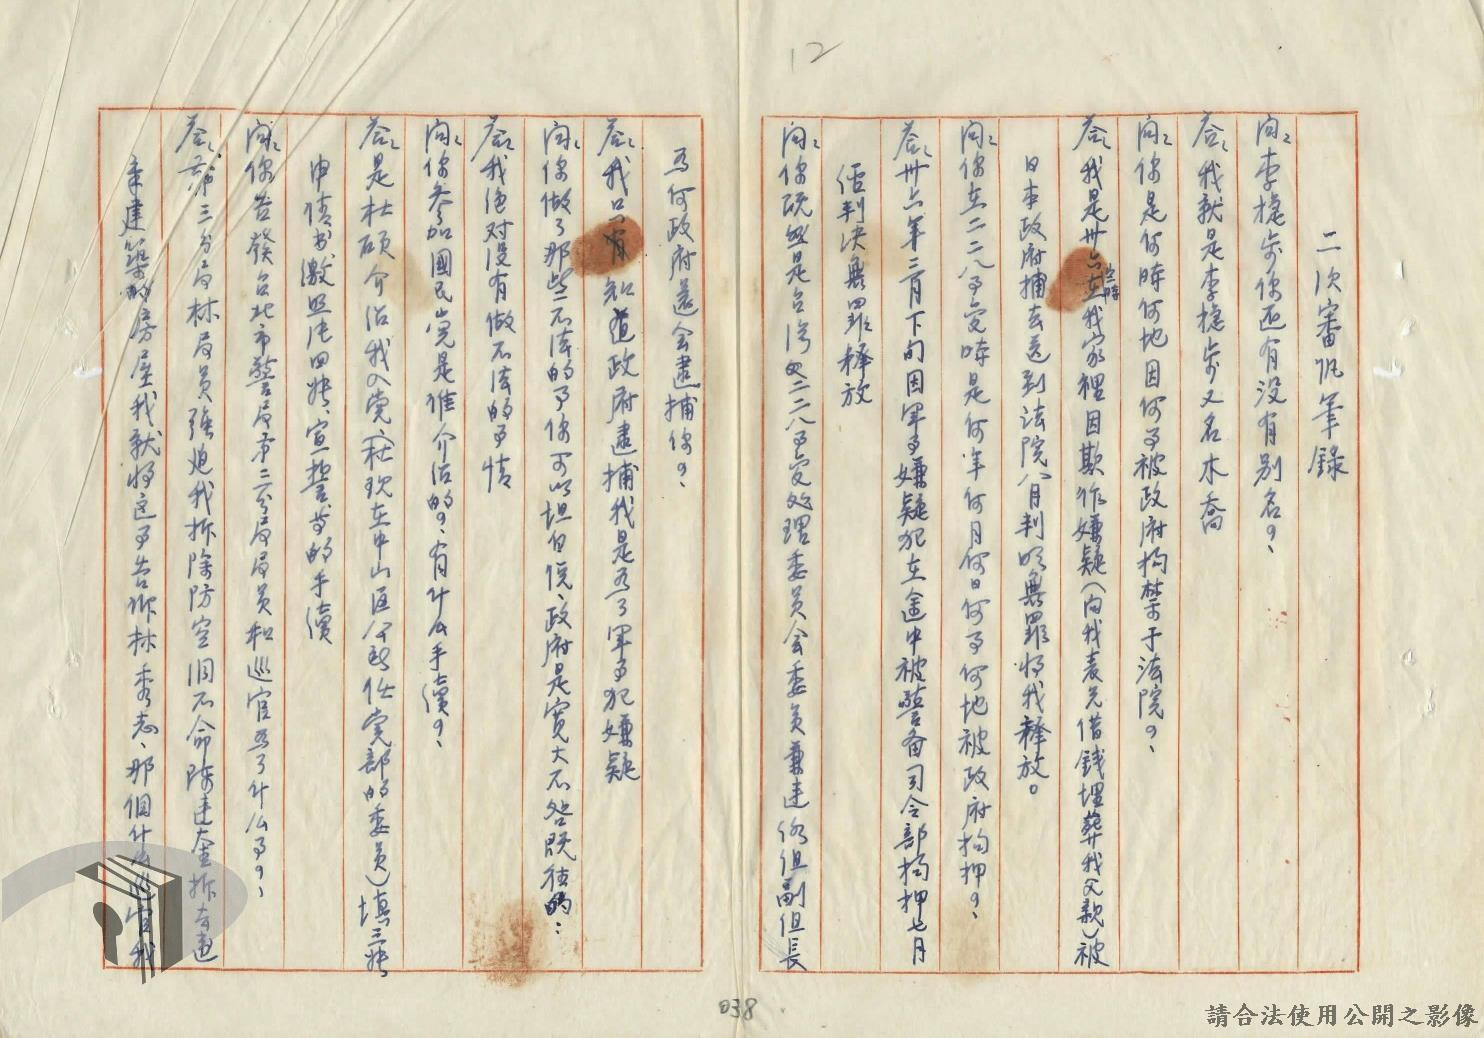 12
二次審訊筆錄
問：李振芳你还有没有别名？、
答：我就是李振芳又名木喬
問：你是何時何地因何事被政府拘禁于法院？、
答：我是卅六年空時在我家裡因欺詐嫌疑（向我表兄借錢埋葬我父款）被
日本政府捕去送到法院八月判明無罪將我釋放。
問：你在二二八事变時是何年何月何日何事何地被政府拘押？、
答：卅六年三月下旬因軍事嫌疑犯在途中被警备司令部拘押七月
經判决無罪釋放
問：你既然是台灣 二二八事变处理委員会委員兼建 組副組長
為何政府還会逮捕你？、
答：我只有知道政府逮捕我是為了軍事犯嫌疑
問：你做了那些不法的事你可以坦白说、政府是寬大不咎既往的：
答：我絶对没有做不法的事情
問：你参加國民党是谁介紹的？、有什么手續？、
答：是杜碩介紹我入党（杜现在中山区公所任党部的委員）填三張
申請书繳照片四張、宣誓等的手續
問：你告發台北市警局第三分局局員和巡官為了什么事？、
答：第三分局林局員強迫我拆除防空洞不命陳達 拆去違
章建築的房屋我就将这事告訴林秀志、那個什么巡官我
038
請合法使用公開之影像